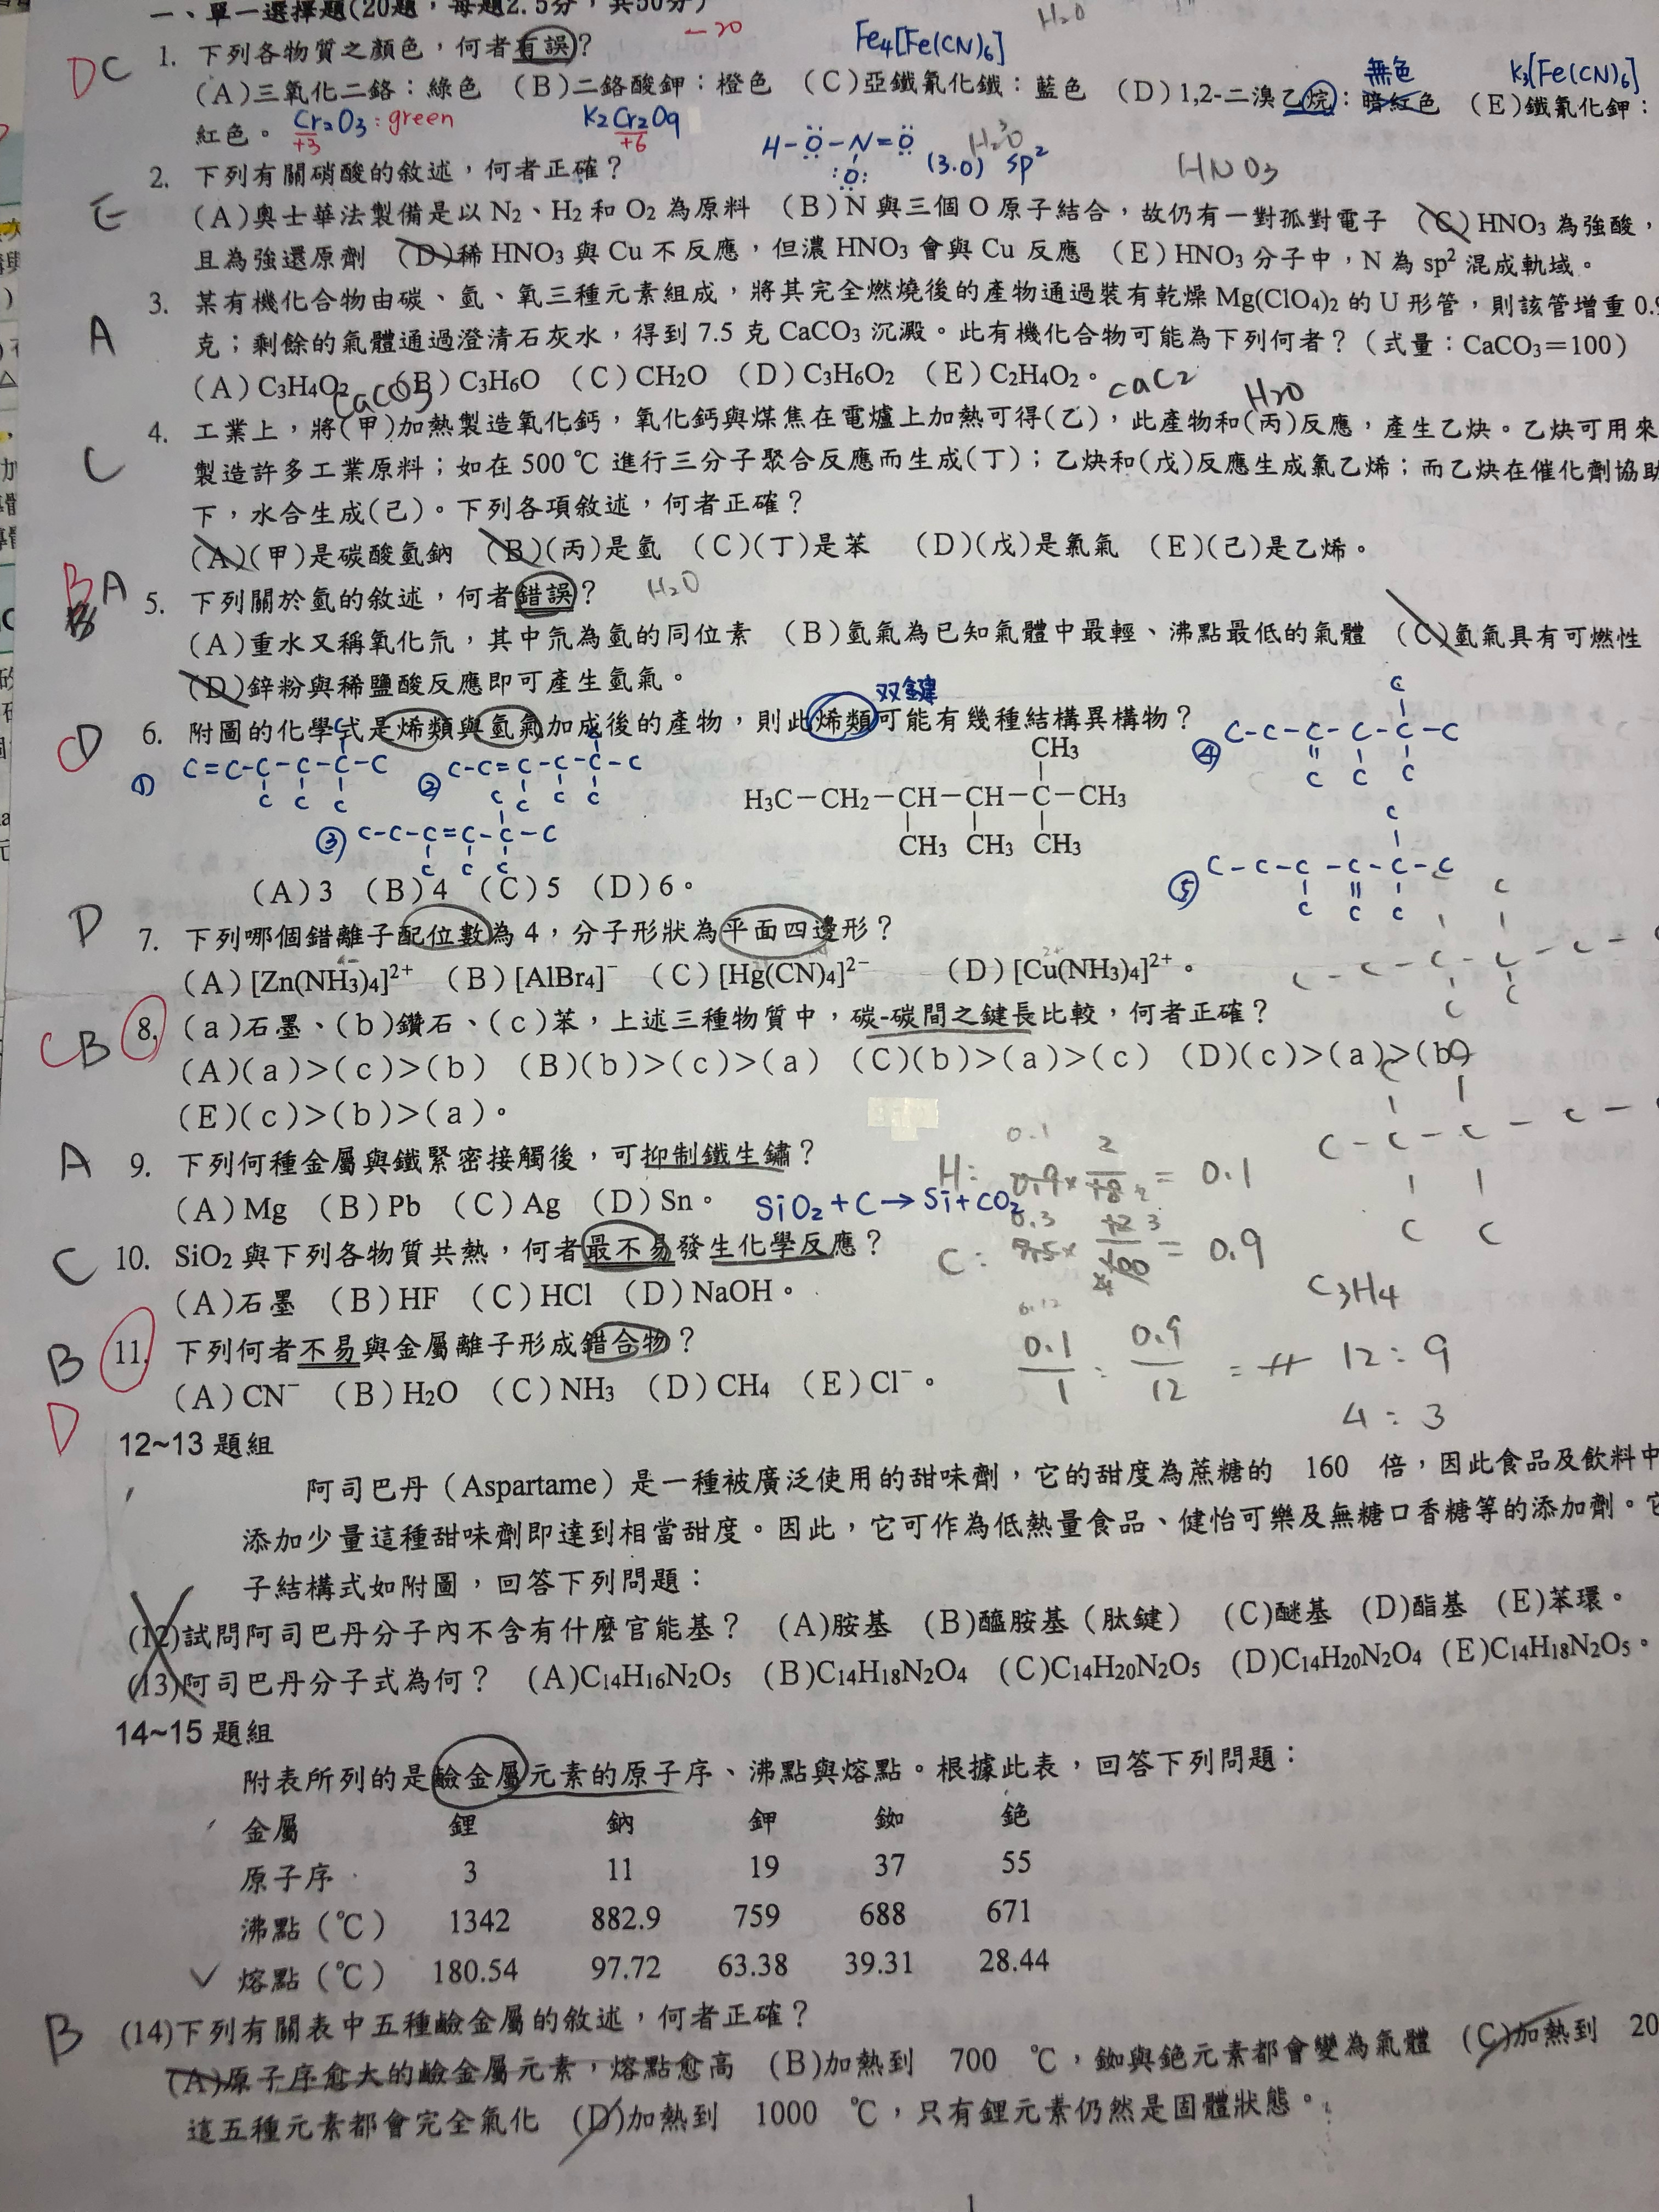 一、單一選擇題(20題，每題2.5分，共50分)
-20
H₂O
Fe4[Fe(CN)6]
DC
1. 下列各物質之顏色，何者有誤？
無色
K3[Fe(CN)6]
(A)三氧化二鉻：綠色 (B)二鉻酸鉀：橙色 (C)亞鐵氰化鐵：藍色 (D)1,2-二溴乙烷：暗紅色 (E)鐵氰化鉀：
紅色。 Cr2O3:green K2Cr2O9
+3 +6
H-O-N=O
:O:
(3.0) sp²
H₂O
HNO3
E
2. 下列有關硝酸的敘述，何者正確？
(A)奧士華法製備是以N2、H2和O2為原料 (B)N與三個O原子結合，故仍有一對孤對電子 (C)HNO3為強酸，
且為強還原劑 (D)稀HNO3與Cu不反應，但濃HNO3會與Cu反應 (E)HNO3分子中，N為sp²混成軌域。
A
3. 某有機化合物由碳、氫、氧三種元素組成，將其完全燃燒後的產物通過裝有乾燥Mg(ClO4)2的U形管，則該管增重0.9
克；剩餘的氣體通過澄清石灰水，得到7.5克CaCO3沉澱。此有機化合物可能為下列何者？(式量：CaCO3＝100)
(A)C3H4O2 (B)C3H6O (C)CH2O (D)C3H6O2 (E)C2H4O2。
CaCO3 CaC2 H2O
C
4. 工業上，將(甲)加熱製造氧化鈣，氧化鈣與煤焦在電爐上加熱可得(乙)，此產物和(丙)反應，產生乙炔。乙炔可用來
製造許多工業原料；如在500℃進行三分子聚合反應而生成(丁)；乙炔和(戊)反應生成氯乙烯；而乙炔在催化劑協助
下，水合生成(己)。下列各項敘述，何者正確？
(A)(甲)是碳酸氫鈉 (B)(丙)是氫 (C)(丁)是苯 (D)(戊)是氯氣 (E)(己)是乙烯。
BA
5. 下列關於氫的敘述，何者錯誤？ H2O
(A)重水又稱氧化氘，其中氘為氫的同位素 (B)氫氣為已知氣體中最輕、沸點最低的氣體 (C)氫氣具有可燃性
(D)鋅粉與稀鹽酸反應即可產生氫氣。
双鍵
CD
6. 附圖的化學式是烯類與氫氣加成後的產物，則此烯類可能有幾種結構異構物？
① C=C-C-C-C-C
② C-C=C-C-C-C
③ C-C-C=C-C-C
④ C-C-C-C-C-C
⑤ C-C-C-C-C-C
CH3
H3C－CH2－CH－CH－C－CH3
CH3 CH3 CH3
(A)3 (B)4 (C)5 (D)6。
D
7. 下列哪個錯離子配位數為4，分子形狀為平面四邊形？
(A)[Zn(NH3)4]²⁺ (B)[AlBr4]⁻ (C)[Hg(CN)4]²⁻ (D)[Cu(NH3)4]²⁺。
CB
8. (a)石墨、(b)鑽石、(c)苯，上述三種物質中，碳-碳間之鍵長比較，何者正確？
(A)(a)＞(c)＞(b) (B)(b)＞(c)＞(a) (C)(b)＞(a)＞(c) (D)(c)＞(a)＞(b)
(E)(c)＞(b)＞(a)。
A
9. 下列何種金屬與鐵緊密接觸後，可抑制鐵生鏽？
(A)Mg (B)Pb (C)Ag (D)Sn。
SiO2+C→Si+CO2
H: 0.9×2/18=0.1
C: 7.5×12/100=0.9
C
10. SiO2與下列各物質共熱，何者最不易發生化學反應？
(A)石墨 (B)HF (C)HCl (D)NaOH。
C3H4
0.1/1 : 0.9/12 = 12:9
4:3
B
11. 下列何者不易與金屬離子形成錯合物？
(A)CN⁻ (B)H2O (C)NH3 (D)CH4 (E)Cl⁻。
D
12~13題組
阿司巴丹（Aspartame）是一種被廣泛使用的甜味劑，它的甜度為蔗糖的 160 倍，因此食品及飲料中
添加少量這種甜味劑即達到相當甜度。因此，它可作為低熱量食品、健怡可樂及無糖口香糖等的添加劑。它
子結構式如附圖，回答下列問題：
(12)試問阿司巴丹分子內不含有什麼官能基？ (A)胺基 (B)醯胺基（肽鍵） (C)醚基 (D)酯基 (E)苯環。
(13)阿司巴丹分子式為何？ (A)C14H16N2O5 (B)C14H18N2O4 (C)C14H20N2O5 (D)C14H20N2O4 (E)C14H18N2O5。
14~15題組
附表所列的是鹼金屬元素的原子序、沸點與熔點。根據此表，回答下列問題：
金屬 鋰 鈉 鉀 銣 銫
原子序 3 11 19 37 55
沸點（℃） 1342 882.9 759 688 671
熔點（℃） 180.54 97.72 63.38 39.31 28.44
B
(14)下列有關表中五種鹼金屬的敘述，何者正確？
(A)原子序愈大的鹼金屬元素，熔點愈高 (B)加熱到 700 ℃，銣與銫元素都會變為氣體 (C)加熱到 20
這五種元素都會完全氣化 (D)加熱到 1000 ℃，只有鋰元素仍然是固體狀態。
1